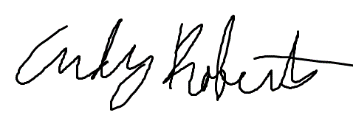 Andy Roberts